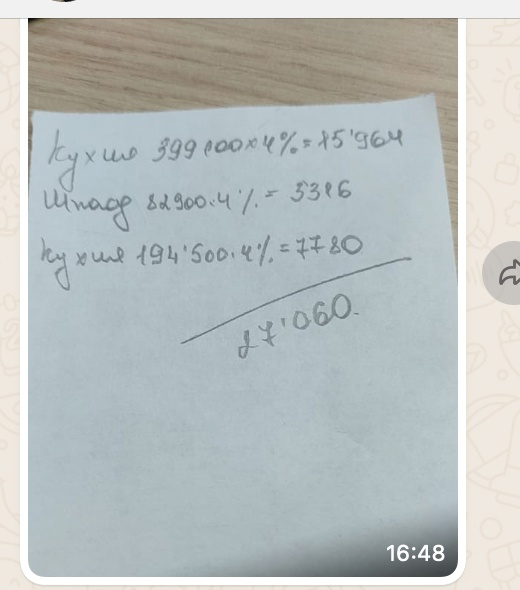 Кухня 399'100×4%=15'964
Шкаф 82900.4%= 3316
Кухня 194'500.4%=7780
27'060.
16:48